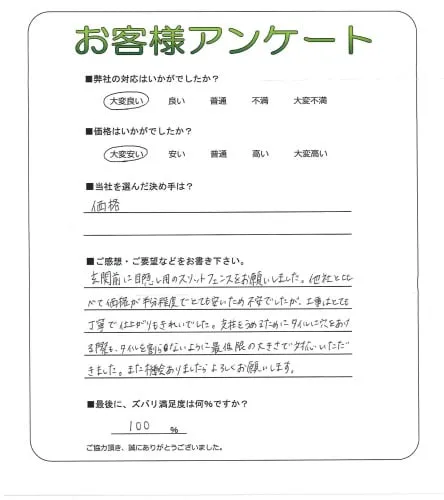 お客様アンケート
■弊社の対応はいかがでしたか?
大変良い 良い 普通 不満 大変不満
■価格はいかがでしたか?
大変安い 安い 普通 高い 大変高い
■当社を選んだ決め手は?
価格
■ご感想・ご要望などをお書き下さい。
玄関前に目隠し用のスリットフェンスをお願いしました。他社とくら
べて価格が半分程度でとても安いため不安でしたが、工事はとても
丁寧で仕上がりもきれいでした。支柱をうめるためにタイルに穴をあけ
る際も、タイルを割らないように最低限の大きさで いただ
きました。また機会ありましたらよろしくお願いします。
■最後に、ズバリ満足度は何%ですか?
100 %
ご協力頂き、誠にありがとうございました。